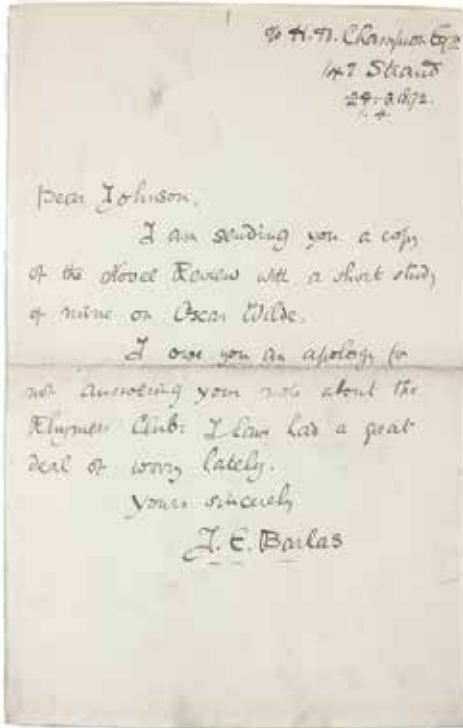 c/o H. H. Champion Esqre
147 Strand
1892.
Dear Johnson,
I am sending you a copy
of the Novel Review with a short study
of mine on Oscar Wilde.
I owe you an apology for
not answering your note about the
Rhymers Club: I have had a great
deal of worry lately.
Yours sincerely
J. E. Barlas